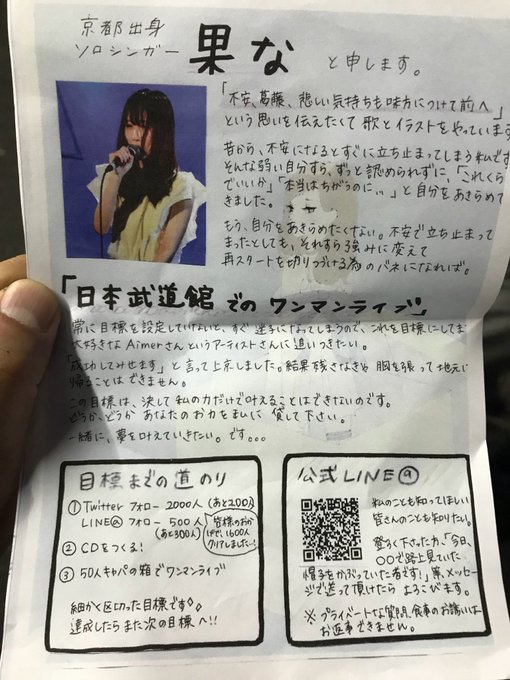 京都出身
ソロシンガー 果な と申します。
「不安、葛藤、悲しい気持ちも味方につけて前へ」
という思いを伝えたくて 歌とイラストをやっています
昔から、不安になるとすぐに立ち止まってしまう私です
そんな弱い自分すら、ずっと認められずに、「これくら
でいいか」「本当はちがうのに…」と自分をあきらめて
きました。
もう、自分をあきらめたくない。不安で立ち止まって
まったとしても、それすら強みに変えて
再スタートを切りつづける為のバネになれれば。
「日本武道館でのワンマンライブ」
常に目標を設定していないと、すぐ迷子になってしまうので、これを目標にしてま
大好きなAimerさんというアーティストさんに追いつきたい。
「成功してみせます」と言って上京しました。結果残さなきゃ胸を張って地元に
帰ることはできません。
この目標は、決して私の力だけで叶えることはできないのです。
どうか、どうか あなたのお力をましに 貸して下さい。
一緒に、夢を叶えていきたい。です。。。
目標までの道のり
① Twitter フォロー 2000人 (あと200人)
LINE@ フォロー 500人
(あと300人)
皆様のおか
げで、1600人
クリアしました…!
② CDをつくる!
③ 50人キャパの箱でワンマンライブ
細かく区切った目標です◇。
達成したらまた次の目標へ!!
公式LINE@
私のことも知ってほしい
皆さんのことも知りたい。
登ろく下さった方、「今日、
〇〇で路上見ていた
帽子をかぶっていた者です!」等、メッセー
ジで送って頂けたら よろこびます。
※ プライベートな質問、食事のお誘いは
お返事できません。